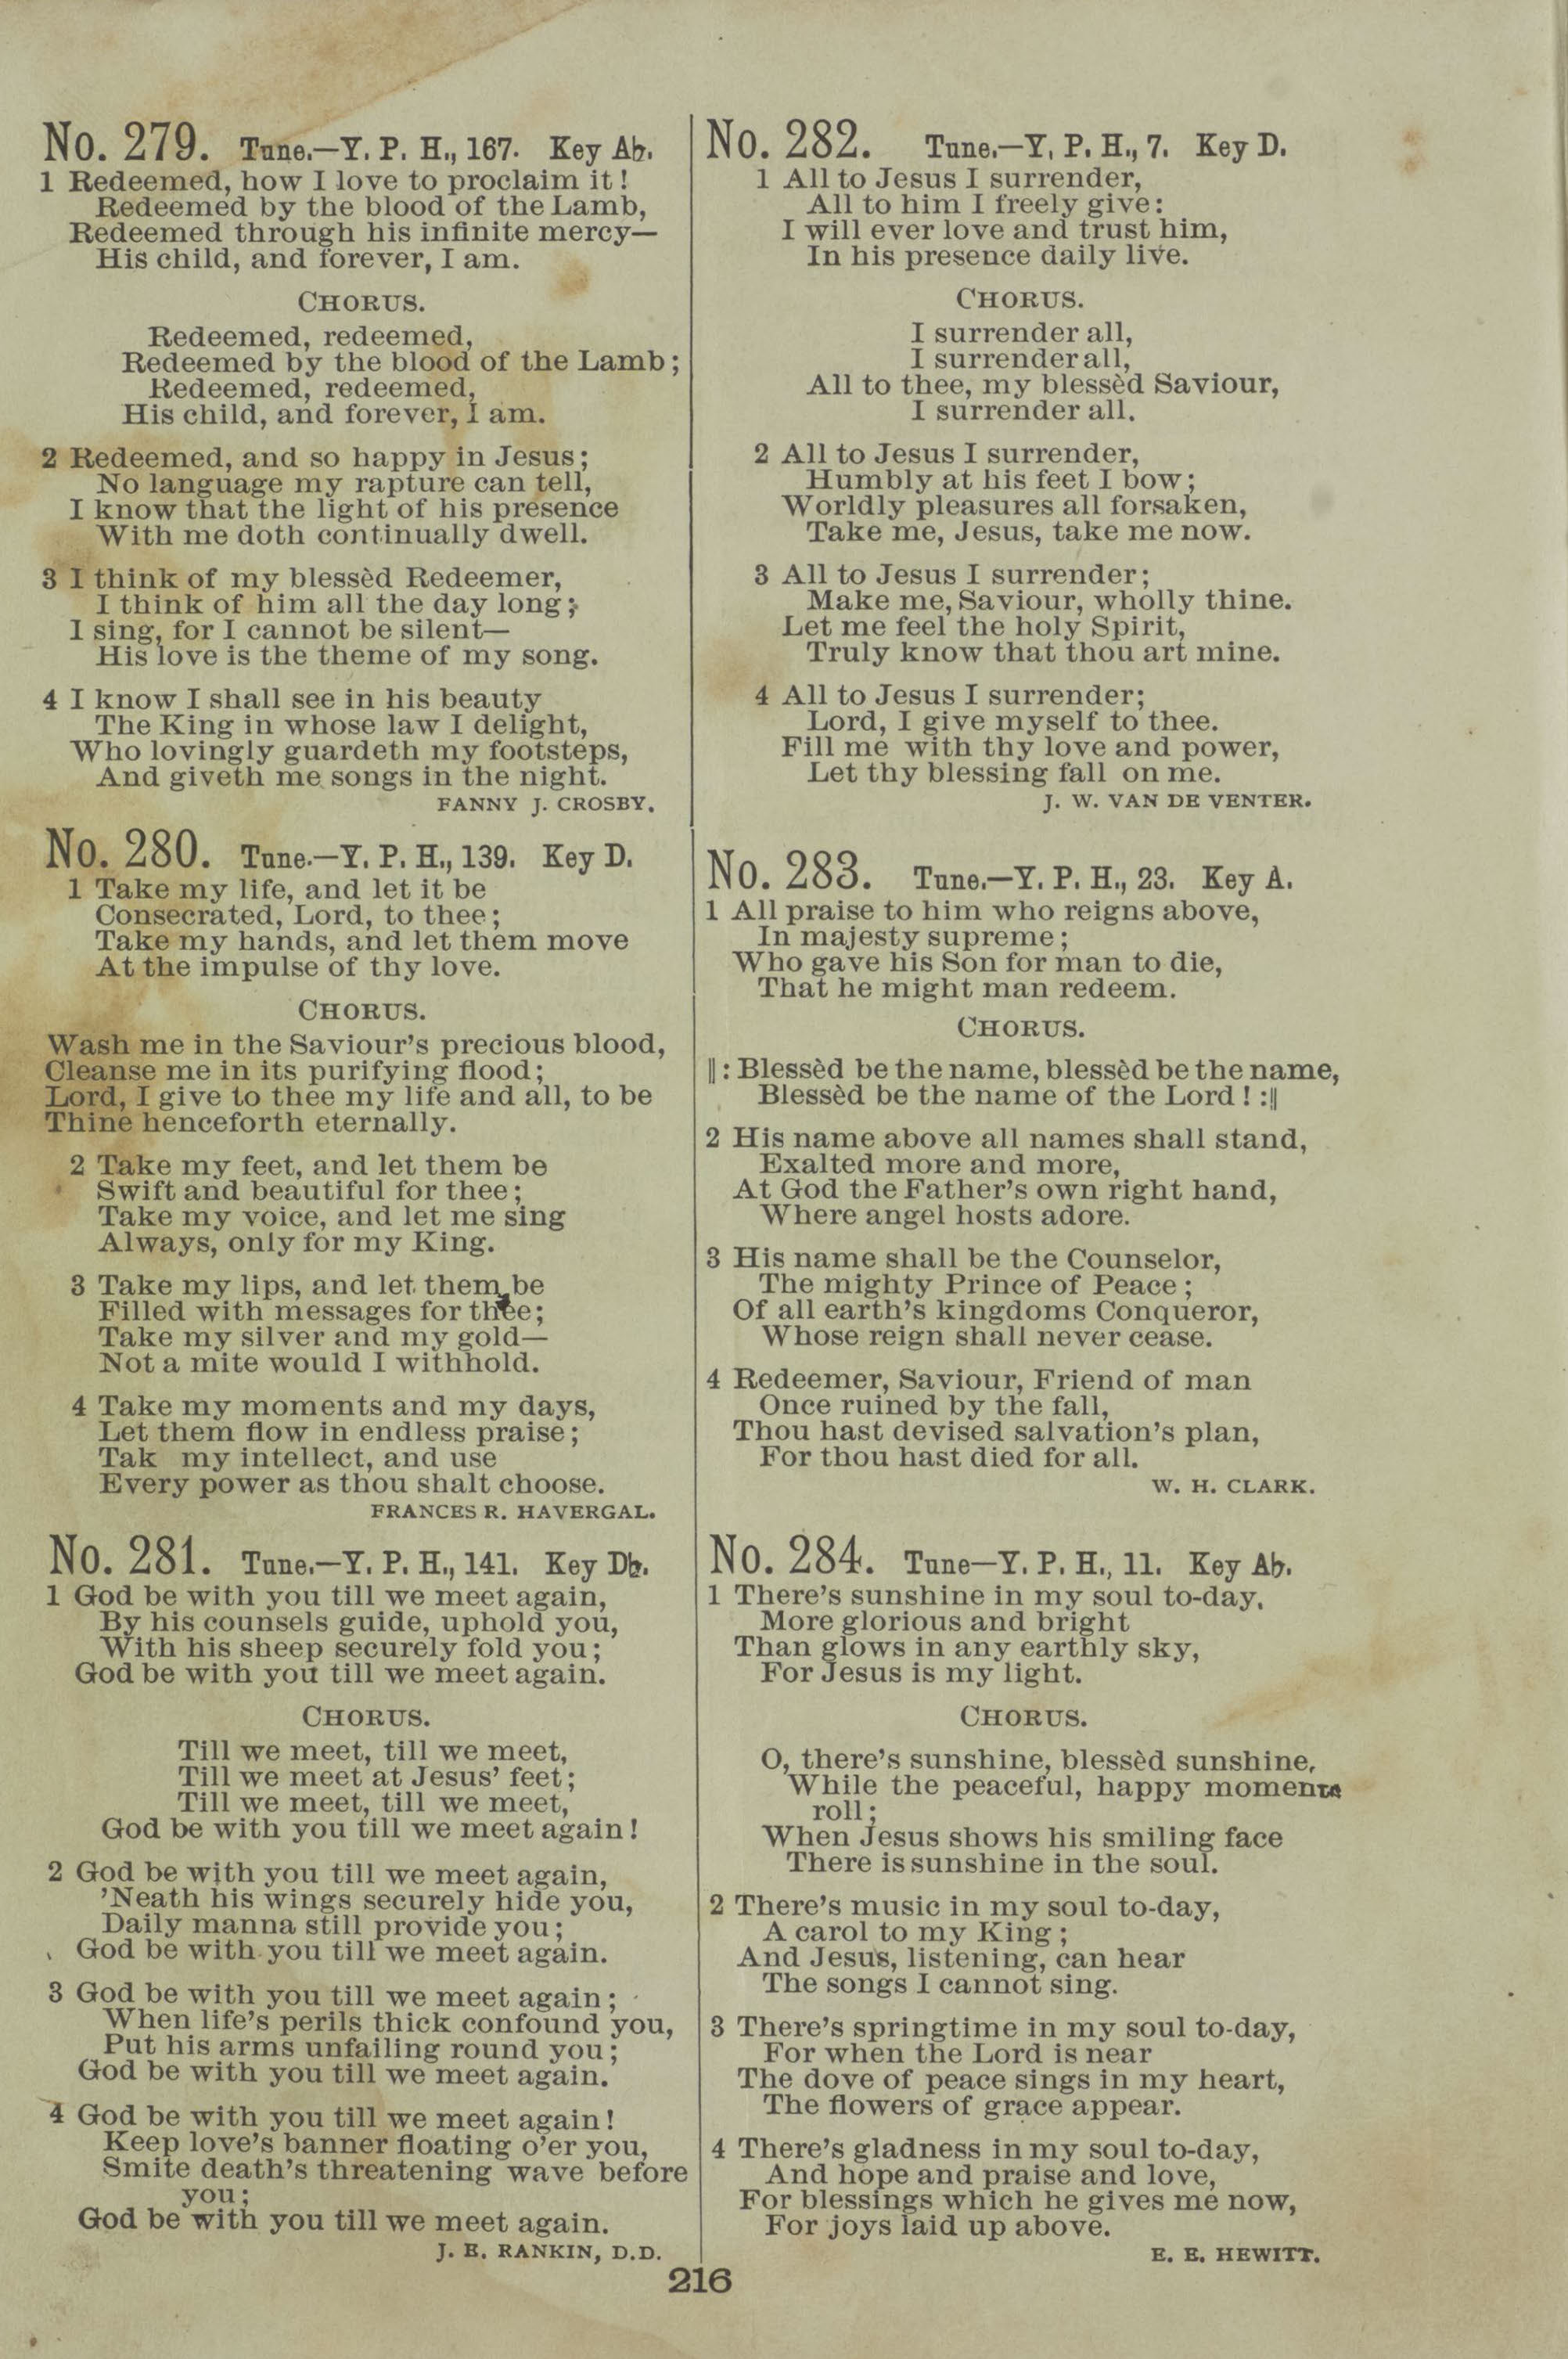 No. 279. Tune.—Y. P. H., 167. Key A♭.
1 Redeemed, how I love to proclaim it!
Redeemed by the blood of the Lamb,
Redeemed through his infinite mercy—
His child, and forever, I am.
CHORUS.
Redeemed, redeemed,
Redeemed by the blood of the Lamb;
Redeemed, redeemed,
His child, and forever, I am.
2 Redeemed, and so happy in Jesus;
No language my rapture can tell,
I know that the light of his presence
With me doth continually dwell.
3 I think of my blessèd Redeemer,
I think of him all the day long;
I sing, for I cannot be silent—
His love is the theme of my song.
4 I know I shall see in his beauty
The King in whose law I delight,
Who lovingly guardeth my footsteps,
And giveth me songs in the night.
FANNY J. CROSBY.
No. 280. Tune.—Y. P. H., 139. Key D.
1 Take my life, and let it be
Consecrated, Lord, to thee;
Take my hands, and let them move
At the impulse of thy love.
CHORUS.
Wash me in the Saviour's precious blood,
Cleanse me in its purifying flood;
Lord, I give to thee my life and all, to be
Thine henceforth eternally.
2 Take my feet, and let them be
Swift and beautiful for thee;
Take my voice, and let me sing
Always, only for my King.
3 Take my lips, and let them be
Filled with messages for thee;
Take my silver and my gold—
Not a mite would I withhold.
4 Take my moments and my days,
Let them flow in endless praise;
Tak my intellect, and use
Every power as thou shalt choose.
FRANCES R. HAVERGAL.
No. 281. Tune.—Y. P. H., 141. Key D♭.
1 God be with you till we meet again,
By his counsels guide, uphold you,
With his sheep securely fold you;
God be with you till we meet again.
CHORUS.
Till we meet, till we meet,
Till we meet at Jesus' feet;
Till we meet, till we meet,
God be with you till we meet again!
2 God be with you till we meet again,
'Neath his wings securely hide you,
Daily manna still provide you;
God be with you till we meet again.
3 God be with you till we meet again;
When life's perils thick confound you,
Put his arms unfailing round you;
God be with you till we meet again.
4 God be with you till we meet again!
Keep love's banner floating o'er you,
Smite death's threatening wave before
you;
God be with you till we meet again.
J. E. RANKIN, D.D.
No. 282. Tune.—Y. P. H., 7. Key D.
1 All to Jesus I surrender,
All to him I freely give:
I will ever love and trust him,
In his presence daily live.
CHORUS.
I surrender all,
I surrender all,
All to thee, my blessèd Saviour,
I surrender all.
2 All to Jesus I surrender,
Humbly at his feet I bow;
Worldly pleasures all forsaken,
Take me, Jesus, take me now.
3 All to Jesus I surrender;
Make me, Saviour, wholly thine.
Let me feel the holy Spirit,
Truly know that thou art mine.
4 All to Jesus I surrender;
Lord, I give myself to thee.
Fill me with thy love and power,
Let thy blessing fall on me.
J. W. VAN DE VENTER.
No. 283. Tune.—Y. P. H., 23. Key A.
1 All praise to him who reigns above,
In majesty supreme;
Who gave his Son for man to die,
That he might man redeem.
CHORUS.
‖: Blessèd be the name, blessèd be the name,
Blessèd be the name of the Lord! :‖
2 His name above all names shall stand,
Exalted more and more,
At God the Father's own right hand,
Where angel hosts adore.
3 His name shall be the Counselor,
The mighty Prince of Peace;
Of all earth's kingdoms Conqueror,
Whose reign shall never cease.
4 Redeemer, Saviour, Friend of man
Once ruined by the fall,
Thou hast devised salvation's plan,
For thou hast died for all.
W. H. CLARK.
No. 284. Tune—Y. P. H., 11. Key A♭.
1 There's sunshine in my soul to-day,
More glorious and bright
Than glows in any earthly sky,
For Jesus is my light.
CHORUS.
O, there's sunshine, blessèd sunshine,
While the peaceful, happy moments
roll;
When Jesus shows his smiling face
There is sunshine in the soul.
2 There's music in my soul to-day,
A carol to my King;
And Jesus, listening, can hear
The songs I cannot sing.
3 There's springtime in my soul to-day,
For when the Lord is near
The dove of peace sings in my heart,
The flowers of grace appear.
4 There's gladness in my soul to-day,
And hope and praise and love,
For blessings which he gives me now,
For joys laid up above.
E. E. HEWITT.
216